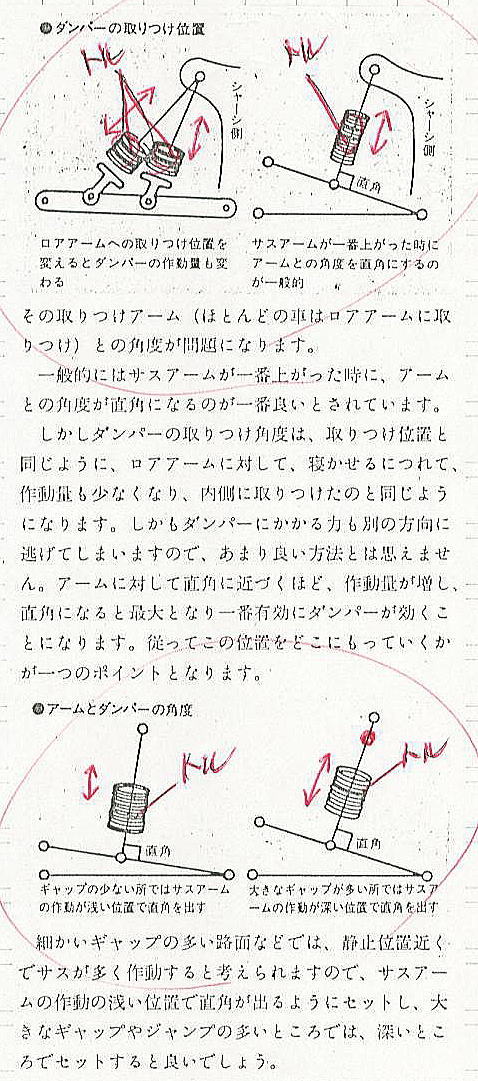 ●ダンパーの取りつけ位置
トル
トル
シャーシ側
シャーシ側
直角
ロアアームへの取りつけ位置を
変えるとダンパーの作動量も変
わる
サスアームが一番上がった時に
アームとの角度を直角にするの
が一般的
その取りつけアーム（ほとんどの車はロアアームに取
りつけ）との角度が問題になります。
一般的にはサスアームが一番上がった時に、アーム
との角度が直角になるのが一番良いとされています。
しかしダンパーの取りつけ角度は、取りつけ位置と
同じように、ロアアームに対して、寝かせるにつれて、
作動量も少なくなり、内側に取りつけたのと同じよう
になります。しかもダンパーにかかる力も別の方向に
逃げてしまいますので、あまり良い方法とは思えませ
ん。アームに対して直角に近づくほど、作動量が増し、
直角になると最大となり一番有効にダンパーが効くこ
とになります。従ってこの位置をどこにもっていくか
が一つのポイントとなります。
●アームとダンパーの角度
トル
トル
直角
直角
ギャップの少ない所ではサスアーム
の作動が浅い位置で直角を出す
大きなギャップが多い所ではサスア
ームの作動が深い位置で直角を出す
細かいギャップの多い路面などでは、静止位置近く
でサスが多く作動すると考えられますので、サスアー
ムの作動の浅い位置で直角が出るようにセットし、大
きなギャップやジャンプの多いところでは、深いとこ
ろでセットすると良いでしょう。